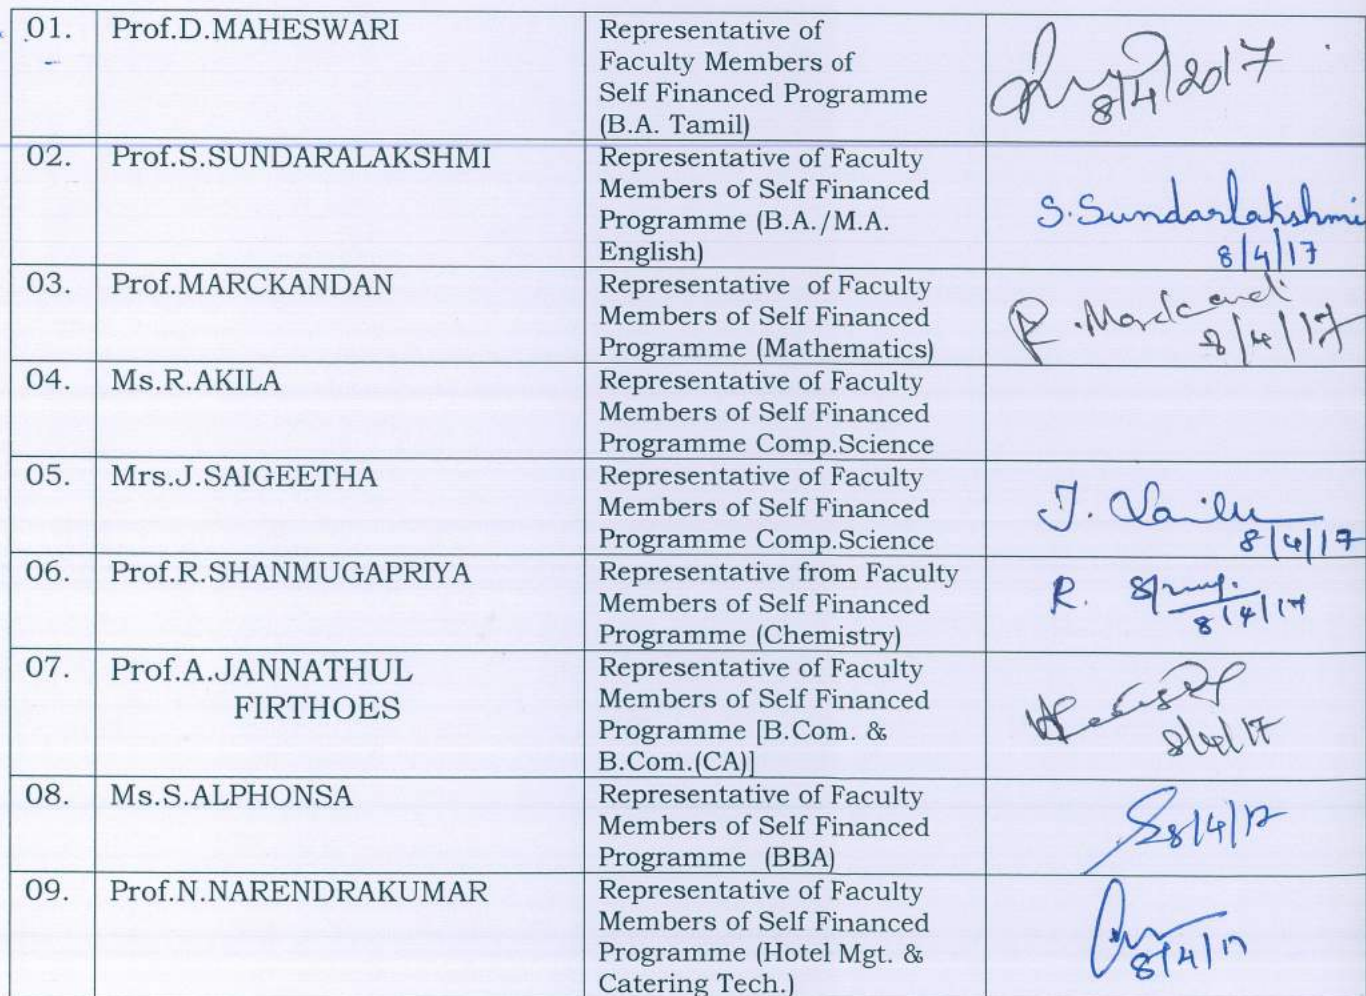 01. Prof.D.MAHESWARI Representative of
Faculty Members of
Self Financed Programme
(B.A. Tamil)
8/4/2017
02. Prof.S.SUNDARALAKSHMI Representative of Faculty
Members of Self Financed
Programme (B.A./M.A.
English)
S.Sundarlakshmi
8/4/17
03. Prof.MARCKANDAN Representative of Faculty
Members of Self Financed
Programme (Mathematics)
R.
8/4/17
04. Ms.R.AKILA Representative of Faculty
Members of Self Financed
Programme Comp.Science
05. Mrs.J.SAIGEETHA Representative of Faculty
Members of Self Financed
Programme Comp.Science
J.
8/4/17
06. Prof.R.SHANMUGAPRIYA Representative from Faculty
Members of Self Financed
Programme (Chemistry)
R.
8/4/17
07. Prof.A.JANNATHUL
FIRTHOES
Representative of Faculty
Members of Self Financed
Programme [B.Com. &
B.Com.(CA)]
8/4/17
08. Ms.S.ALPHONSA Representative of Faculty
Members of Self Financed
Programme (BBA)
8/4/17
09. Prof.N.NARENDRAKUMAR Representative of Faculty
Members of Self Financed
Programme (Hotel Mgt. &
Catering Tech.)
8/4/17